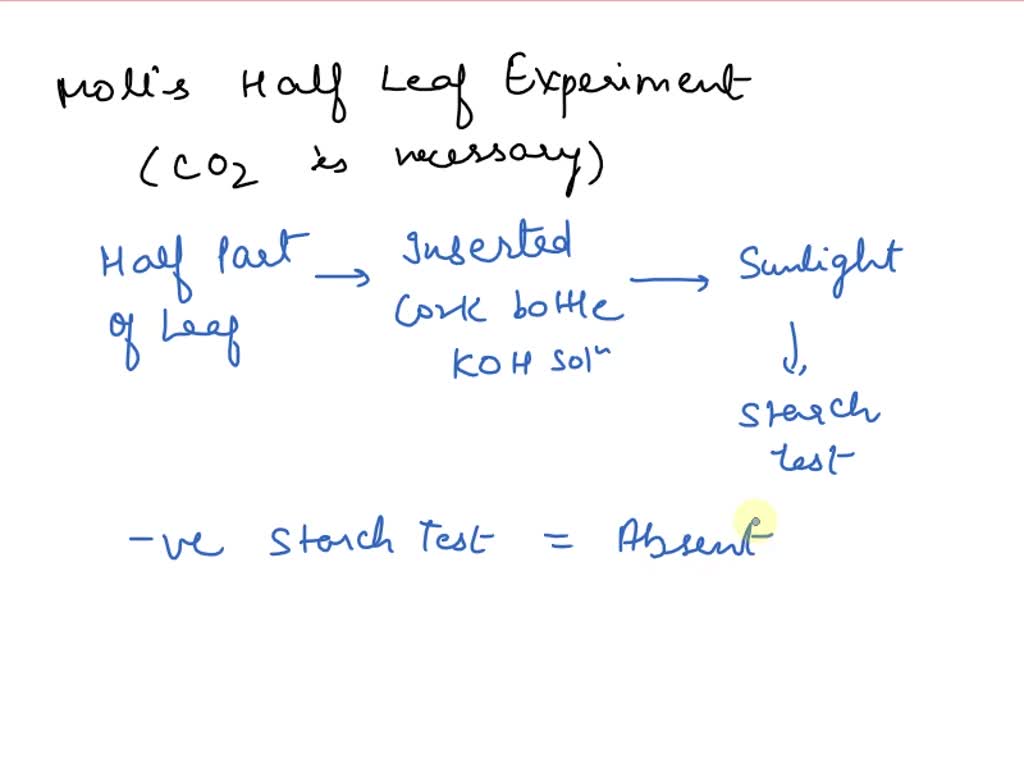 Moll's Half Leaf Experiment
(CO2 is necessary)
Half Part of Leaf → Inserted Cork bottle KOH Solⁿ → Sunlight
↓
Starch test
-ve Starch Test = Absent